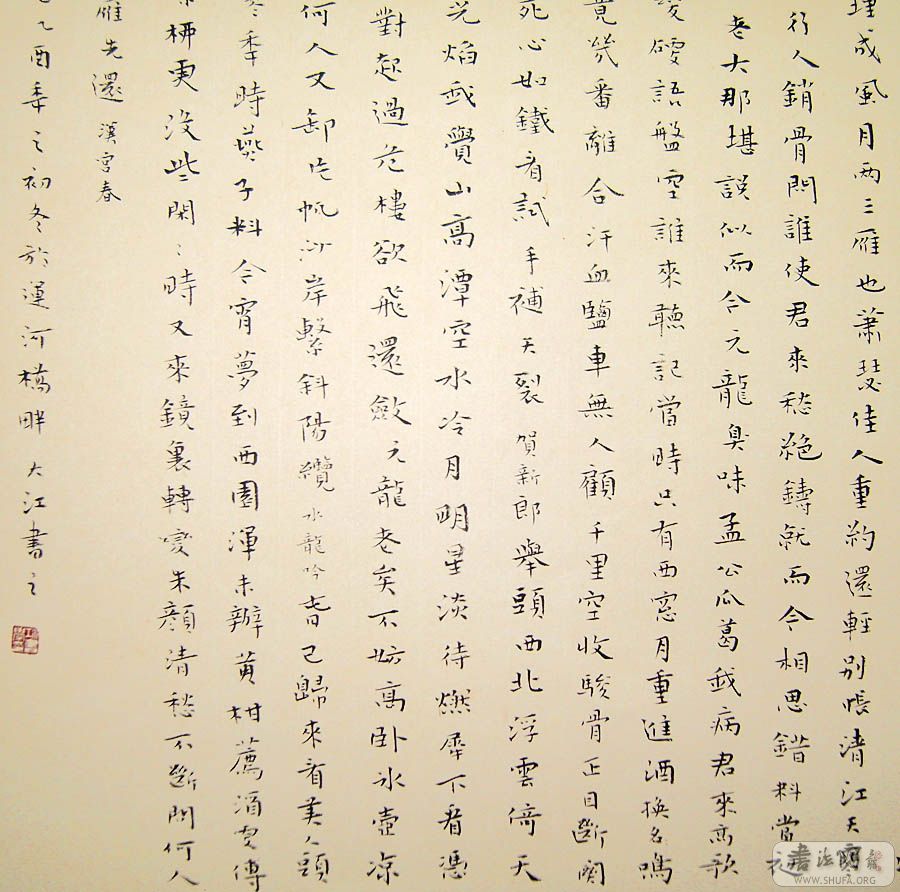 埋成風月两三雁也蕭瑟佳人重約還輕别悵清江天
行人銷骨問誰使君来愁絶鑄就而今相思錯料當初
老大那堪説似而今元龍臭味孟公瓜葛我病君来高歌
硬語盤空誰来聽記當時只有西窓月重進酒換名鳴
竟幾番離合汗血鹽車無人顧千里空收駿骨正目斷關
死心如鐵看試手補天裂 賀新郎 舉頭西北浮雲倚天
光焰我覺山高潭空水冷月明星淡待燃犀下看憑
對起過危樓欲飛還斂元龍老矣不妨高卧冰壺凉
何人又卸片帆沙岸繫斜陽纜 水龍吟 春已歸来看美人頭
寒秊時燕子料今宵夢到西園渾未辦黄柑薦酒更傳
柳更没些閑〻時又来鏡裏轉變朱顔清愁不斷問何人
雁先還 漢宫春
乙酉季之初冬於運河橋畔 大江書之
書法寶龍
WWW.SHUFA.ORG